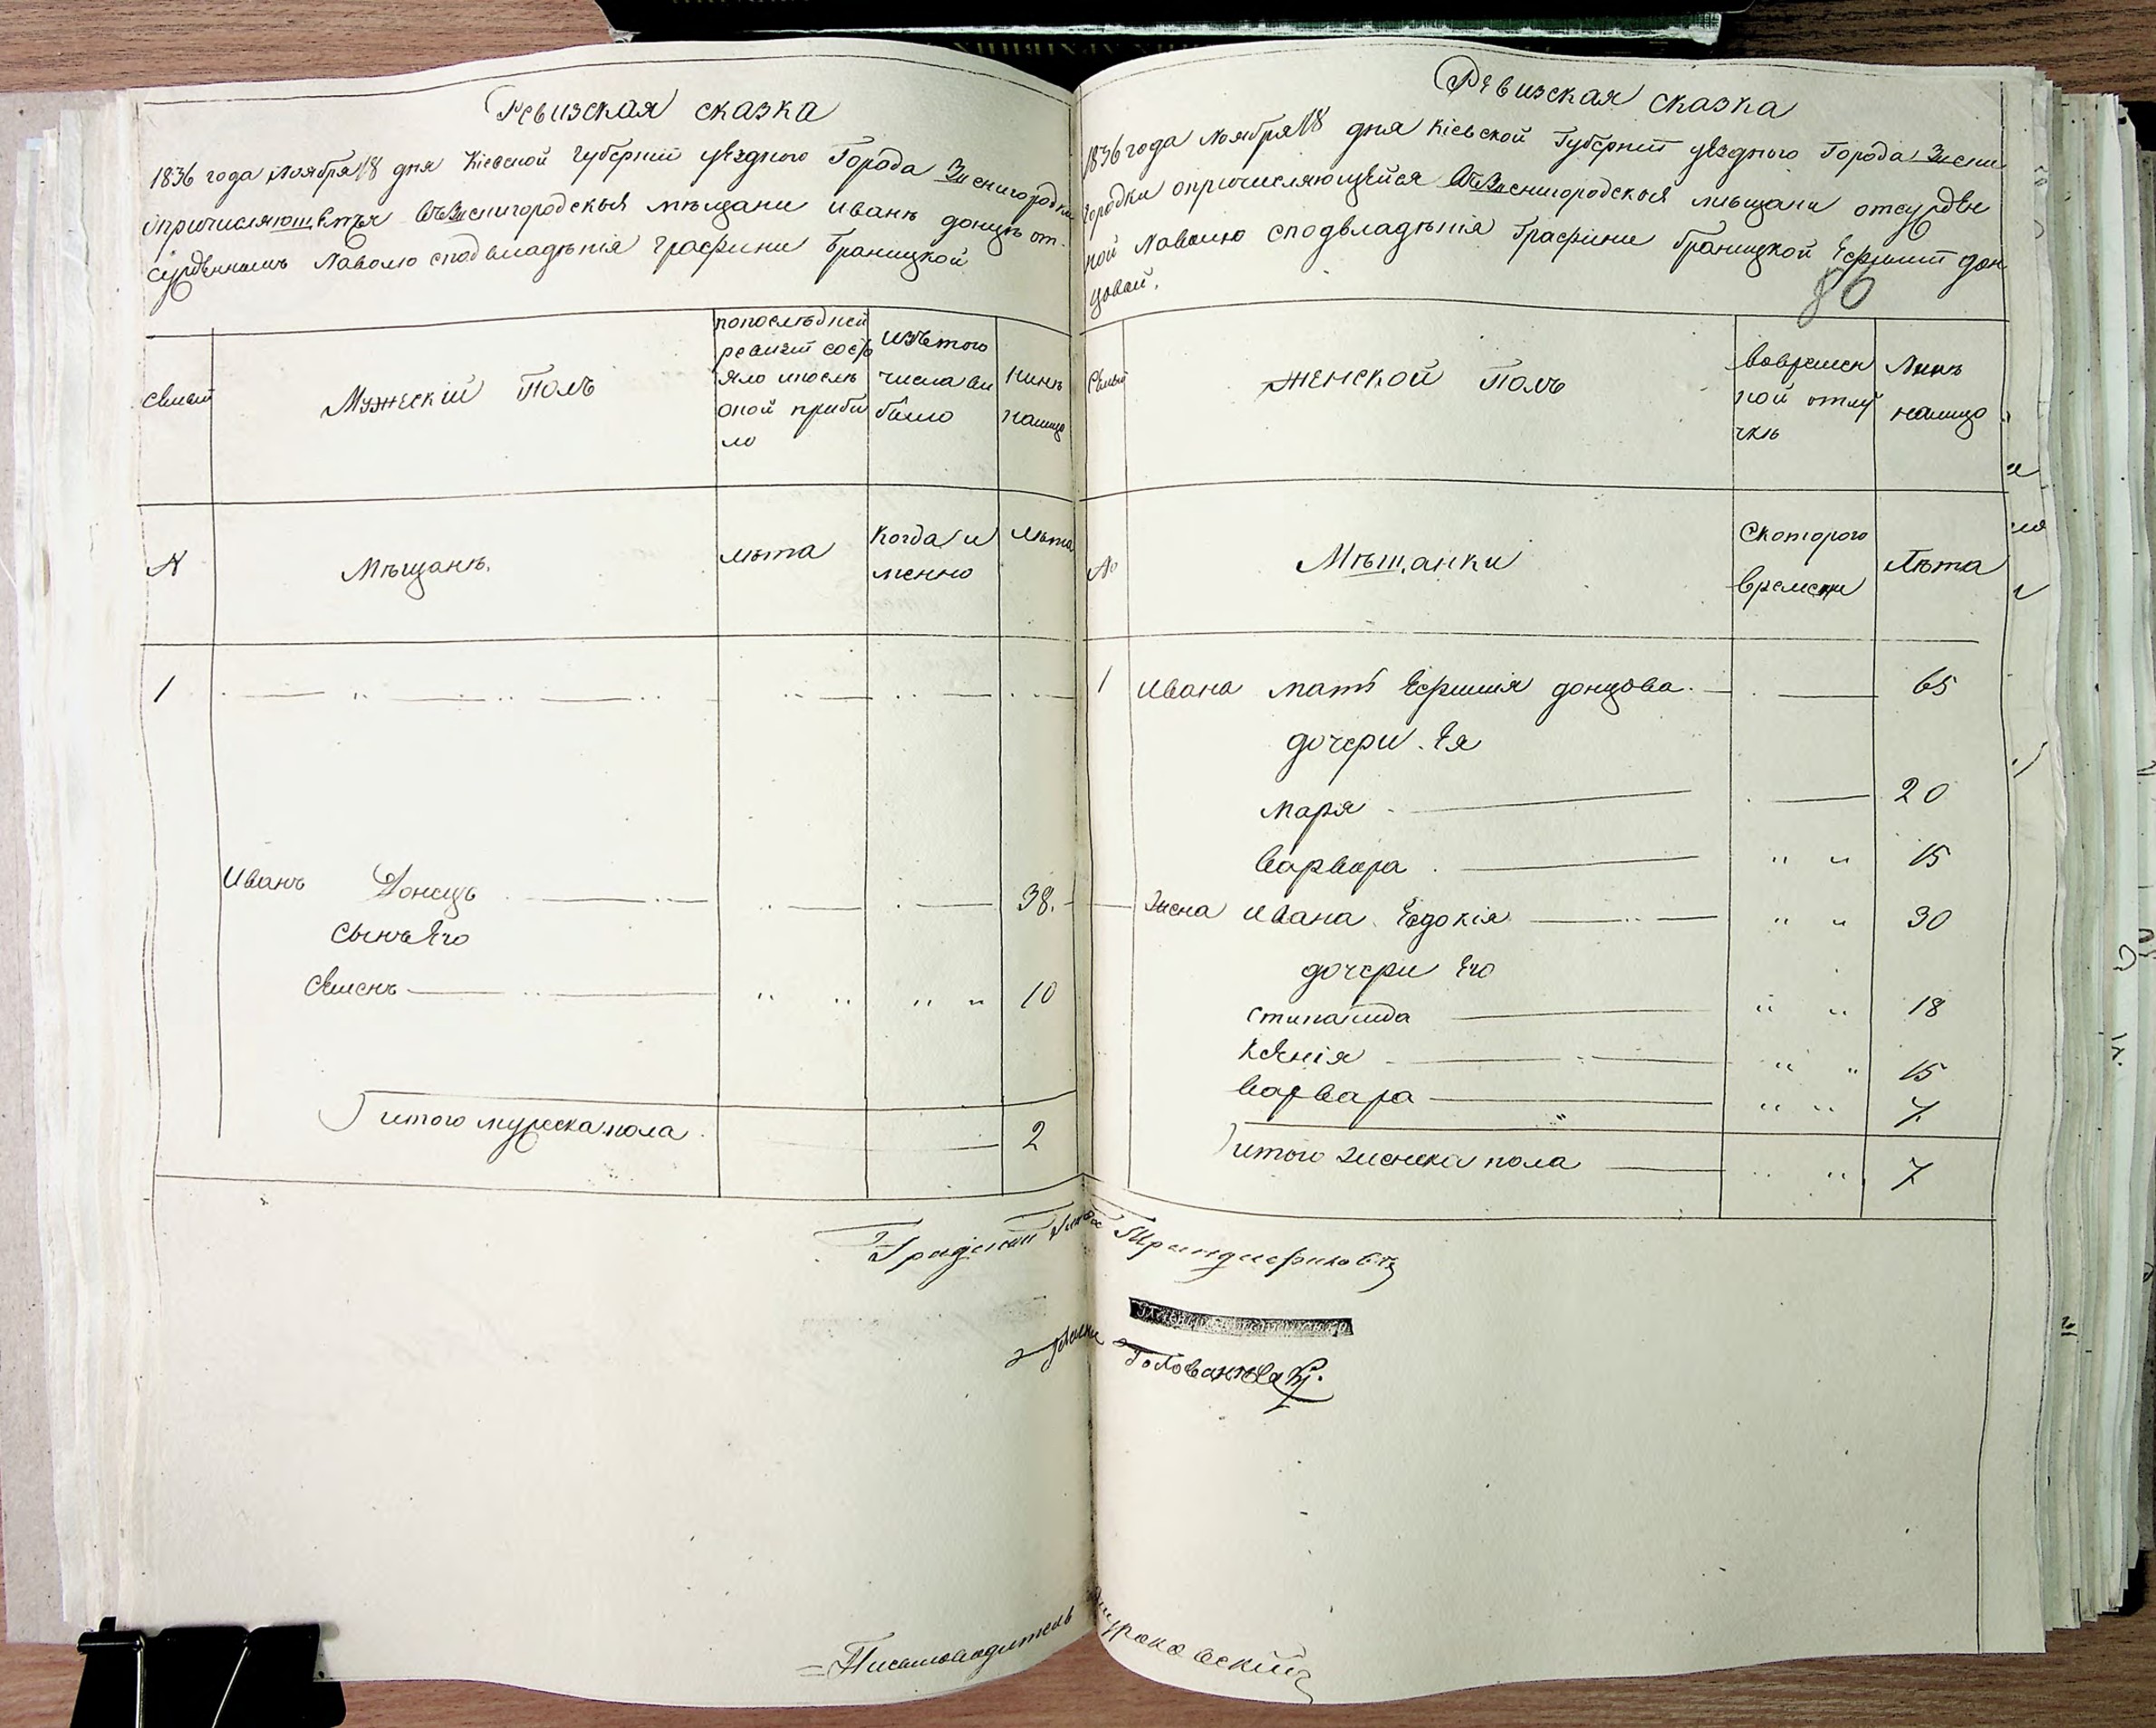 Ревизская сказка
1836 года Ноября 18 дня Кіевской Губерніи уѣздного Города Звенигородки
опричисляющемъся въ Звенигородскыя мѣщани Иванъ донцъ от-
сужденномъ Наволю сподвладѣнія Графини Браницкой
Семьи
Мужескій Полъ
попослѣдней
ревизіи состо
яло ипослѣ
оной прибы
ло
изътого
числа вы
было
Нинѣ
налицо
№
Мѣщанъ.
лѣта
Когда и
менно
лѣта
1
Иванъ Донецъ 38.
Сынъ Его
Семенъ 10
Итого мужеска пола 2
Ревизская сказка
1836 года Ноября 18 дня Кіевской Губерніи уѣздного Города Звени
городки опричисляющейся въ Звенигородскыя мѣщани отсужден
ной Наволю сподвладѣнія Графини Браницкой Ефиміи дон
цовай.
86
Семьи
женской Полъ
вовремен
ной отлу
чкѣ
Нинѣ
налицо
№
Мѣщанки
Скоторого
времени
Лѣта
1 Ивана мать Ефимія донцова 65
дочери Ея
Маря 20
Варвара 15
Жена Ивана Евдокія 30
дочери Его
Стипанида 18
Ксенія 15
Варвара 7
Итого женска пола 7
Градской Глава
Гласний Голованевскій
Письмоводитель